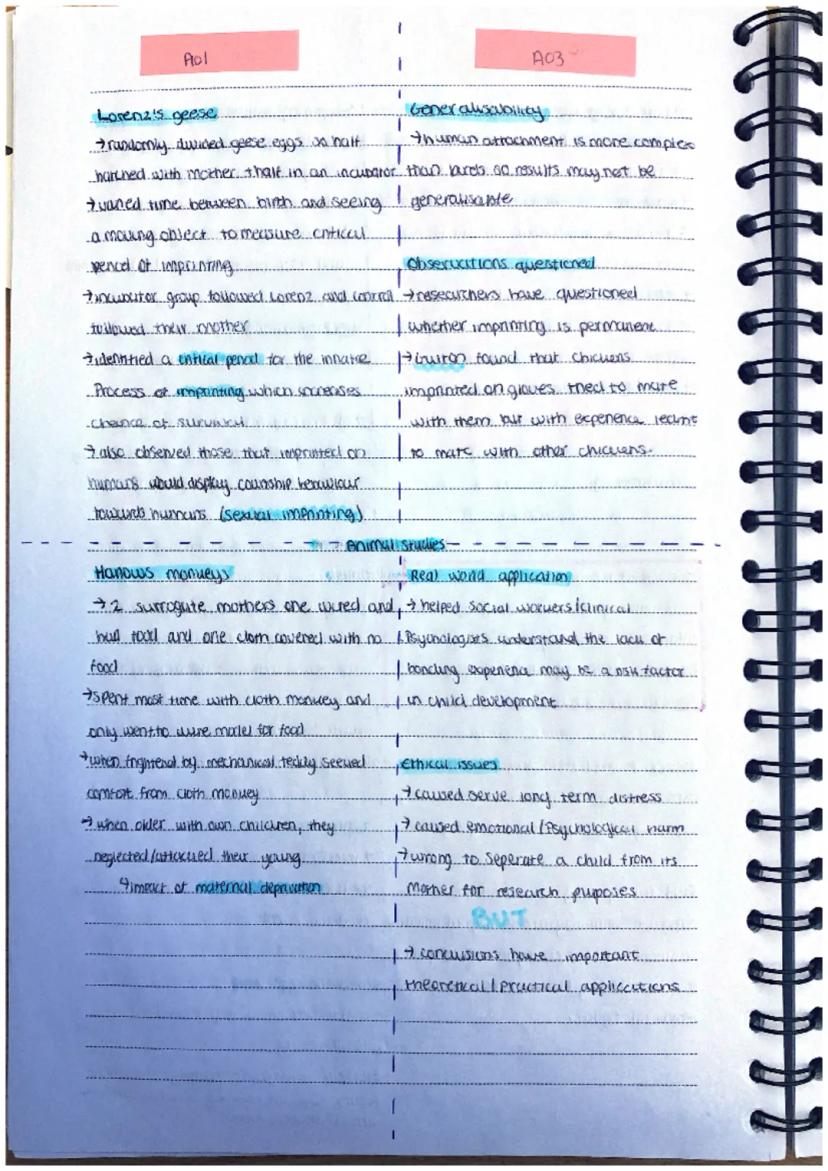 AO1
Lorenz's geese
→ randomly divided geese eggs so half
hatched with mother + half in an incubator
→ varied time between birth and seeing
a moving object to measure critical
period of imprinting
→ incubator group followed Lorenz and control
followed their mother
→ identified a critical period for the innate
Process of imprinting which increases
chance of survival
→ also observed those that imprinted on
humans would display courtship behaviour
towards humans (sexual imprinting)
AO3
Generalisability
→ human attachment is more complex
than birds so results may not be
generalisable
Observations questioned
→ researchers have questioned
whether imprinting is permanent
→ Guiton found that chickens
imprinted on gloves tried to mate
with them but with experience learnt
to mate with other chickens.
Animal Studies
Harlows monkeys
→ 2 surrogate mothers one wired and
had food and one cloth covered with no
food
→ spent most time with cloth monkey and
only went to wire model for food
→ when frightend by mechanical teddy seeked
comfort from cloth monkey
→ when older with own children, they
neglected/attacked their young
↳ impact of maternal deprivation
Real world application
→ helped social workers/clinical
Psychologists understand the lack of
bonding experience may be a risk factor
in child development
Ethical issues
→ caused serve long term distress
→ caused emotional/Psychological harm
→ wrong to seperate a child from its
Mother for research puposes
BUT
→ conclusions have important
theoretical/practical applications